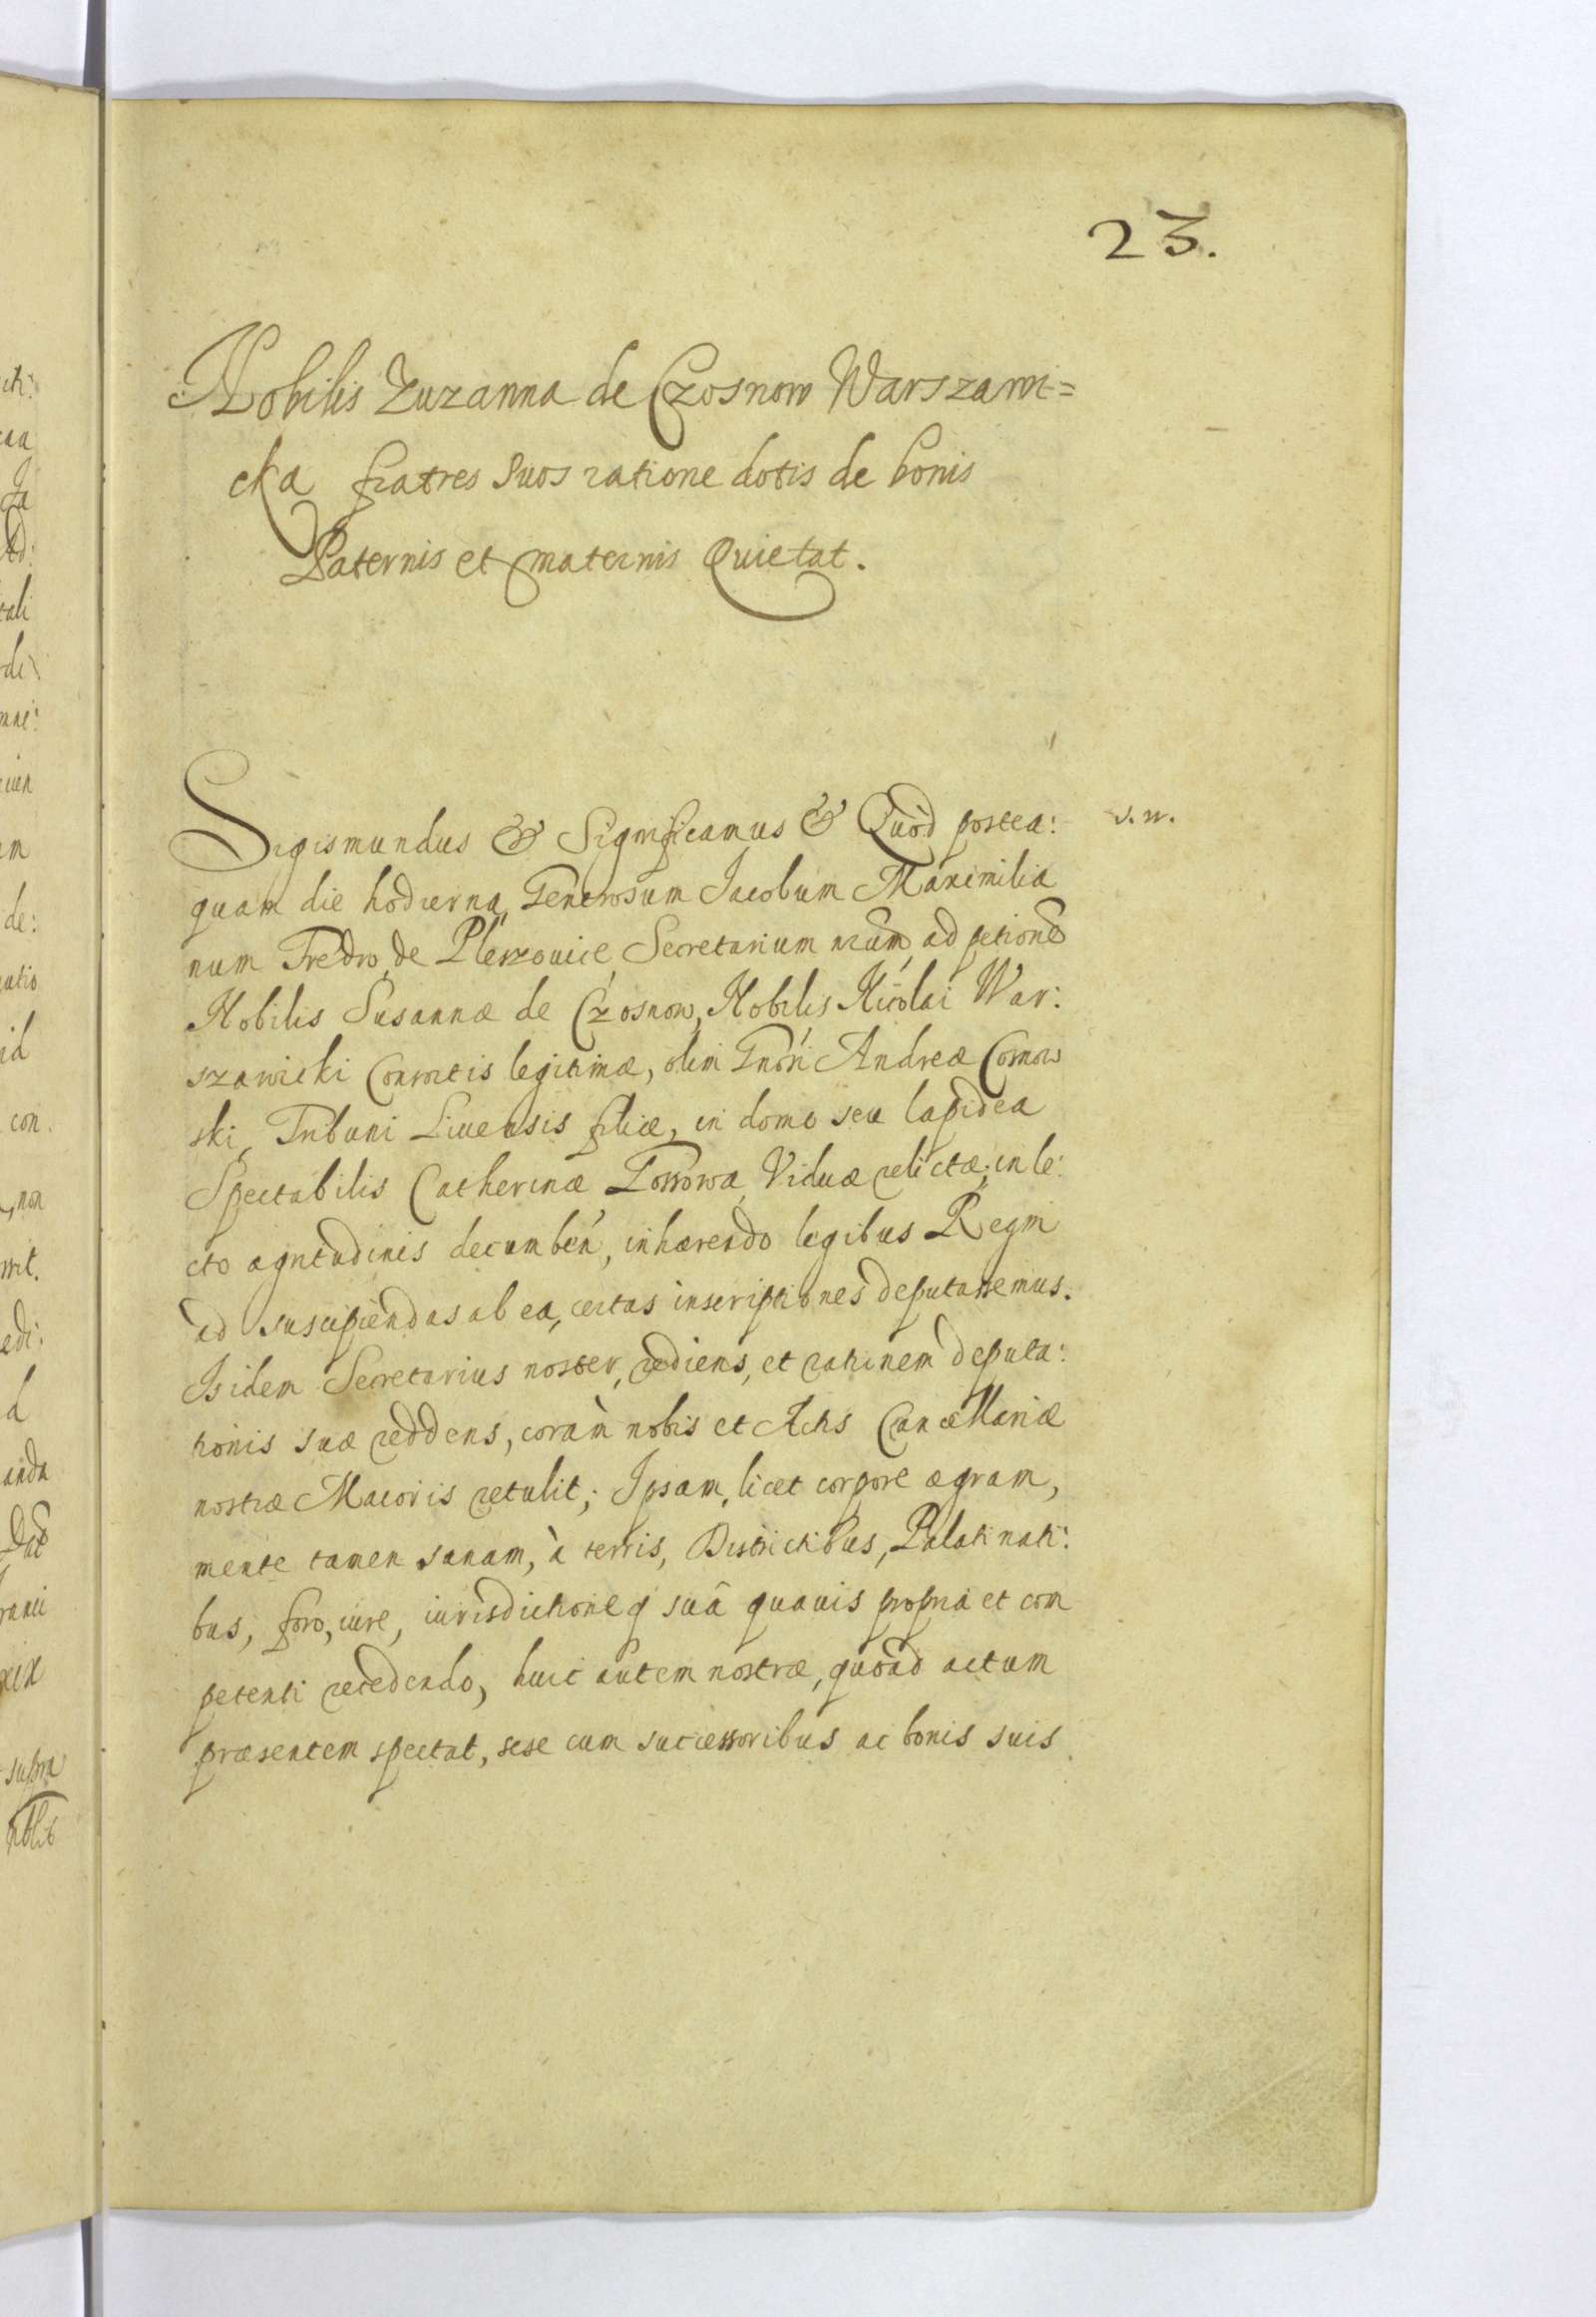 23.
Nobilis Zuzanna de Czosnow Warszawi=
cka fratres Suos ratione dotis de bonis
Paternis et maternis Quietat.
Sigismundus & Significamus & Quod postea:
s. w.
quam die hodierna, Generosum Jacobum Maximilia
num Fredro, de Pleszouice, Secretarium nrum, ad petione
Nobilis Susannæ de Czosnow, Nobilis Nicolai War:
szawicki Consortis legitimæ, olim Gnosi Andreæ Cosnow
ski, Tribuni Liuensis filiæ, in domo seu lapidea
Spectabilis Catherinæ Viduæ relictæ, in le:
cto ægritudinis decumben, inhærendo legibus Regni
ad suscipiendas ab ea, certas inscriptiones deputassemus.
Isidem Secretarius noster, rediens, et rationem deputa:
tionis suæ reddens, coràm nobis et Actis Cancellariæ
nostræ Maioris retulit; Ipsam, licet corpore ægram,
mente tamen sanam, à terris, Districtibus, Palatinati:
bus, foro, iure, iurisdictioneq suâ quauis propria et com
petenti recedendo, huic autem nostræ, quoad actum
præsentem spectat, sese cum successoribus ac bonis suis